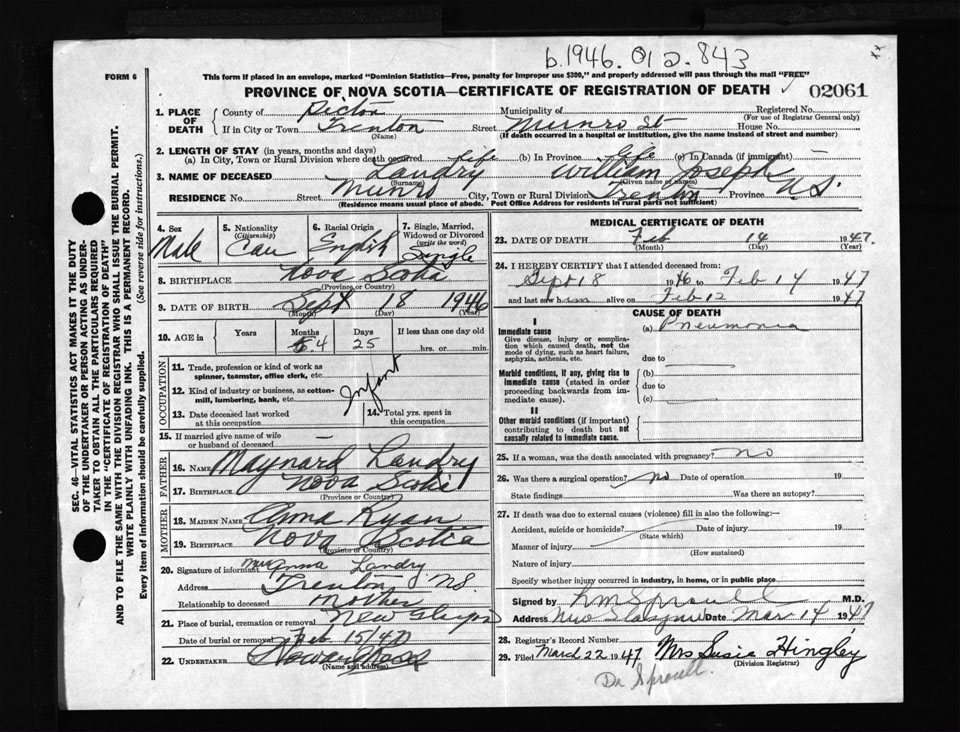 b.1946. 012.843
xx
FORM 6
This form if placed in an envelope, marked "Dominion Statistics—Free, penalty for improper use $300," and properly addressed will pass through the mail "FREE"
PROVINCE OF NOVA SCOTIA—CERTIFICATE OF REGISTRATION OF DEATH
02061
1. PLACE OF DEATH
County of Pictou Municipality of Registered No.
(For use of Registrar General only)
If in City or Town Trenton Street Munro St House No.
(Name) (If death occurred in a hospital or institution, give the name instead of street and number)
2. LENGTH OF STAY (in years, months and days)
(a) In City, Town or Rural Division where death occurred Life (b) In Province Life (c) In Canada (if immigrant) —
3. NAME OF DECEASED Landry William Joseph
(Surname) (Given name or names)
RESIDENCE No. Street Munro City, Town or Rural Division Trenton Province N.S.
(Residence means usual place of abode. Post Office Address for residents in rural parts not sufficient)
4. Sex Male
5. Nationality (Citizenship) Can
6. Racial Origin English
7. Single, Married, Widowed or Divorced (write the word) Single
8. BIRTHPLACE Nova Scotia
(Province or Country)
9. DATE OF BIRTH Sept 18 1946
(Month) (Day) (Year)
10. AGE in Years Months Days If less than one day old
4 25 hrs. or min.
OCCUPATION
11. Trade, profession or kind of work as spinner, teamster, office clerk, etc.
12. Kind of industry or business, as cotton-mill, lumbering, bank, etc.
Infant
13. Date deceased last worked at this occupation
14. Total yrs. spent in this occupation
15. If married give name of wife or husband of deceased —
FATHER
16. NAME Maynard Landry
17. BIRTHPLACE Nova Scotia
(Province or Country)
MOTHER
18. MAIDEN NAME Anna Ryan
19. BIRTHPLACE Nova Scotia
(Province or Country)
20. Signature of informant Mrs Anna Landry
Address Trenton N.S.
Relationship to deceased Mother
21. Place of burial, cremation or removal New Glasgow
Date of burial or removal Feb 15/47
22. UNDERTAKER
(Name and address)
MEDICAL CERTIFICATE OF DEATH
23. DATE OF DEATH Feb 14 1947.
(Month) (Day) (Year)
24. I HEREBY CERTIFY that I attended deceased from:
Sept 18 1946 to Feb 14 1947
and last saw him alive on Feb 12 1947
CAUSE OF DEATH
I
Immediate cause
Give disease, injury or complication which caused death, not the mode of dying, such as heart failure, asphyxia, asthenia, etc.
(a) Pneumonia
due to
Morbid conditions, if any, giving rise to immediate cause (stated in order proceeding backwards from immediate cause).
(b)
due to
(c)
II
Other morbid conditions (if important) contributing to death but not causally related to immediate cause.
25. If a woman, was the death associated with pregnancy? no
26. Was there a surgical operation? no Date of operation 19
State findings Was there an autopsy?
27. If death was due to external causes (violence) fill in also the following:—
Accident, suicide or homicide? Date of injury 19
(State which)
Manner of injury
(How sustained)
Nature of injury
Specify whether injury occurred in industry, in home, or in public place
Signed by HM Sproull M.D.
Address New Glasgow Date Mar 14 1947
28. Registrar's Record Number
29. Filed March 22 1947 Mrs Susie Hingley
(Division Registrar)
Dr Sproull.
SEC. 46—VITAL STATISTICS ACT MAKES IT THE DUTY OF THE UNDERTAKER OR PERSON ACTING AS UNDERTAKER TO OBTAIN ALL THE PARTICULARS REQUIRED IN THE "CERTIFICATE OF REGISTRATION OF DEATH" AND TO FILE THE SAME WITH THE DIVISION REGISTRAR WHO SHALL ISSUE THE BURIAL PERMIT.
WRITE PLAINLY WITH UNFADING INK. THIS IS A PERMANENT RECORD.
Every item of information should be carefully supplied. (See reverse side for instructions.)